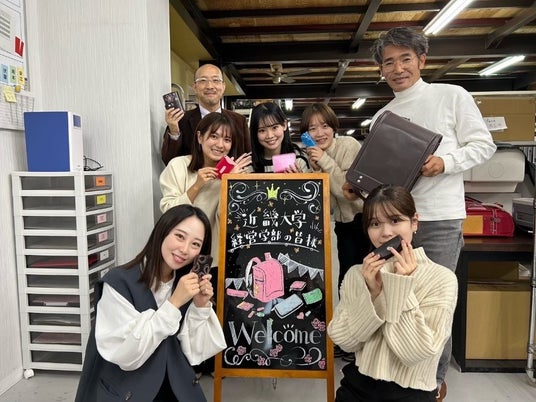 近畿大学
経営学部の皆様
Welcome